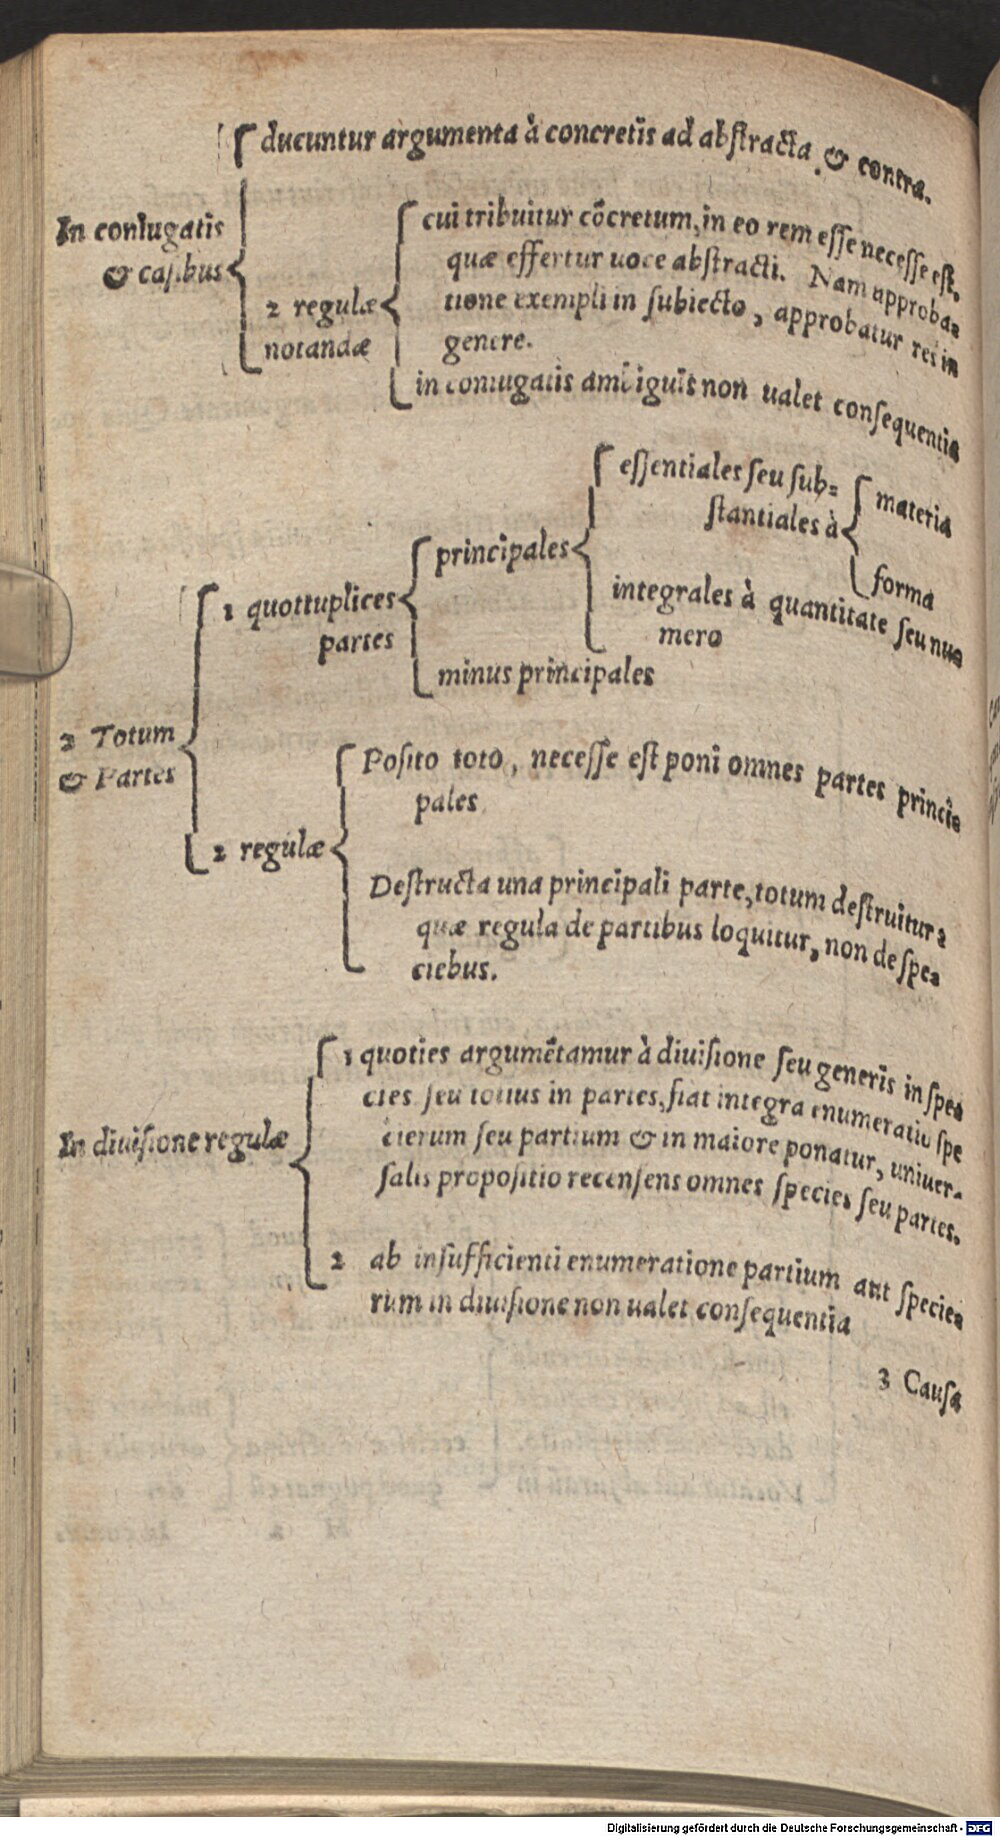 ducuntur argumenta à concretis ad abstracta & contra.
In coniugatis
& casibus
2 regulæ
notandæ
cui tribuitur cōcretum, in eo rem esse necesse est,
quæ effertur uoce abstracti. Nam approba=
tione exempli in subiecto, approbatur res in
genere.
in coniugatis ambiguis non ualet consequentia
2 Totum
& Partes
1 quottuplices
partes
principales
essentiales seu sub=
stantiales à
materia
forma
integrales à quantitate seu nu=
mero
minus principales
2 regulæ
Posito toto, necesse est poni omnes partes princi=
pales
Destructa una principali parte, totum destruitur:
quæ regula de partibus loquitur, non de spe=
ciebus.
In diuisione regulæ
1 quoties argumētamur à diuisione seu generis in spe=
cies seu totius in partes, fiat integra enumeratio spe
cierum seu partium & in maiore ponatur, uniuer-
salis propositio recensens omnes species seu partes.
2 ab insufficienti enumeratione partium aut specie=
rum in diuisione non ualet consequentia
3 Causa
Digitalisierung gefördert durch die Deutsche Forschungsgemeinschaft - DFG